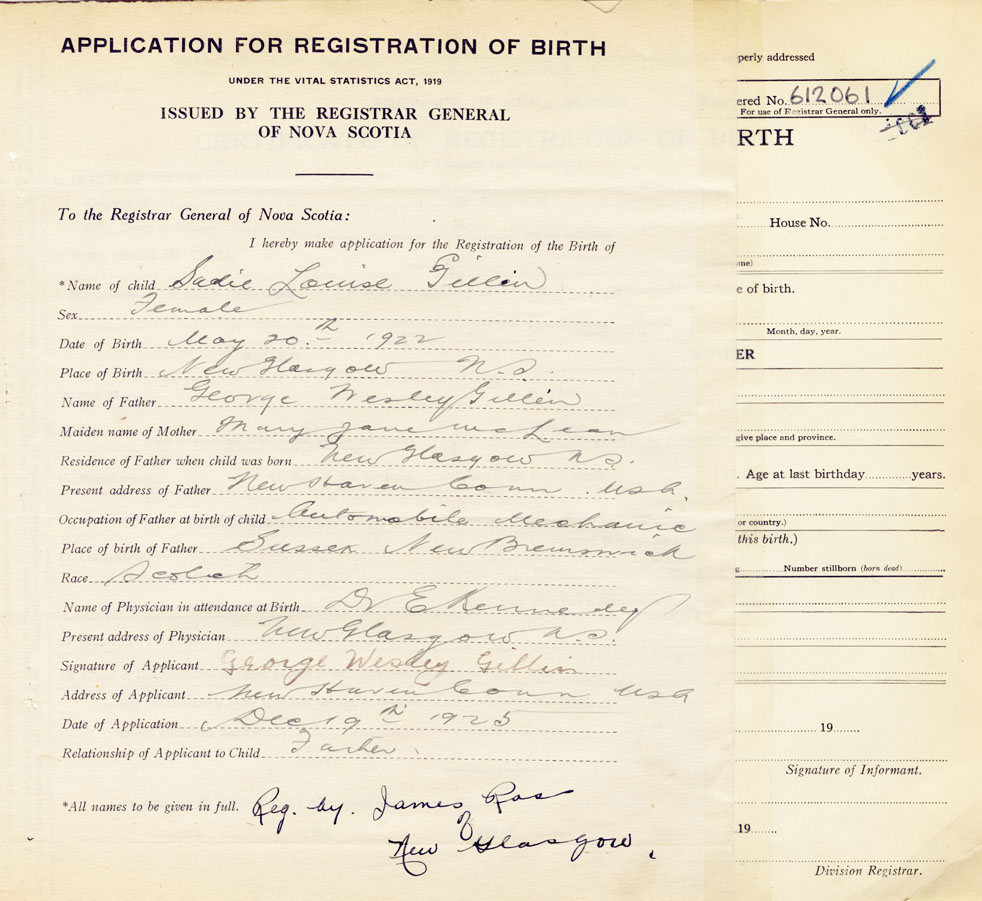 APPLICATION FOR REGISTRATION OF BIRTH
UNDER THE VITAL STATISTICS ACT, 1919
ISSUED BY THE REGISTRAR GENERAL
OF NOVA SCOTIA
To the Registrar General of Nova Scotia:
I hereby make application for the Registration of the Birth of
*Name of child Sadie Louise Gillin
Sex Female
Date of Birth May 20th 1922
Place of Birth New Glasgow N.S.
Name of Father George Wesley Gillin
Maiden name of Mother Mary Jane McLean
Residence of Father when child was born New Glasgow N.S.
Present address of Father New Haven Conn. USA.
Occupation of Father at birth of child Automobile Mechanic
Place of birth of Father Sussex New Brunswick
Race Scotch
Name of Physician in attendance at Birth Dr E Kennedy
Present address of Physician New Glasgow N.S.
Signature of Applicant George Wesley Gillin
Address of Applicant New Haven Conn USA
Date of Application Dec 19th 1925
Relationship of Applicant to Child Father.
*All names to be given in full. Reg. by. James Ross
of
New Glasgow.
perly addressed
ered No. 612061
For use of Registrar General only.
RTH
House No.
me)
e of birth.
Month, day, year.
ER
give place and province.
. Age at last birthday years.
or country.)
this birth.)
Number stillborn (born dead)
19
Signature of Informant.
19
Division Registrar.